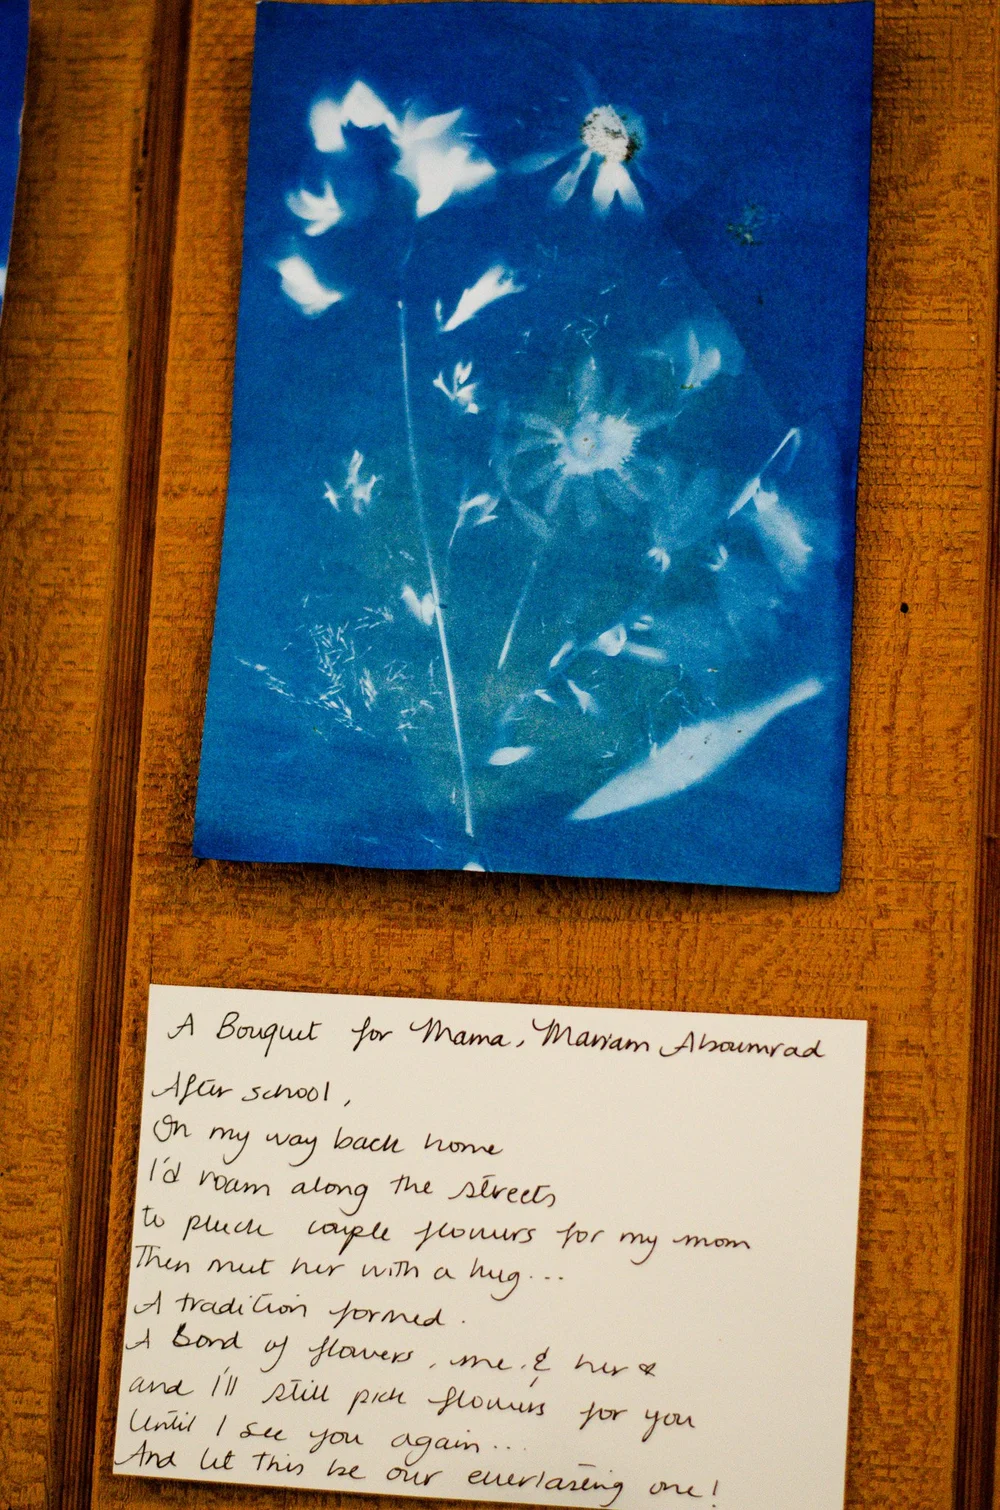 A Bouquet for Mama, Mariam Aboumrad
After school,
On my way back home
I'd roam along the streets
to pluck couple flowers for my mom
Then meet her with a hug...
A tradition formed.
A Bond of flowers, me & her &
and I'll still pick flowers for you
Until I see you again...
And let this be our everlasting one!